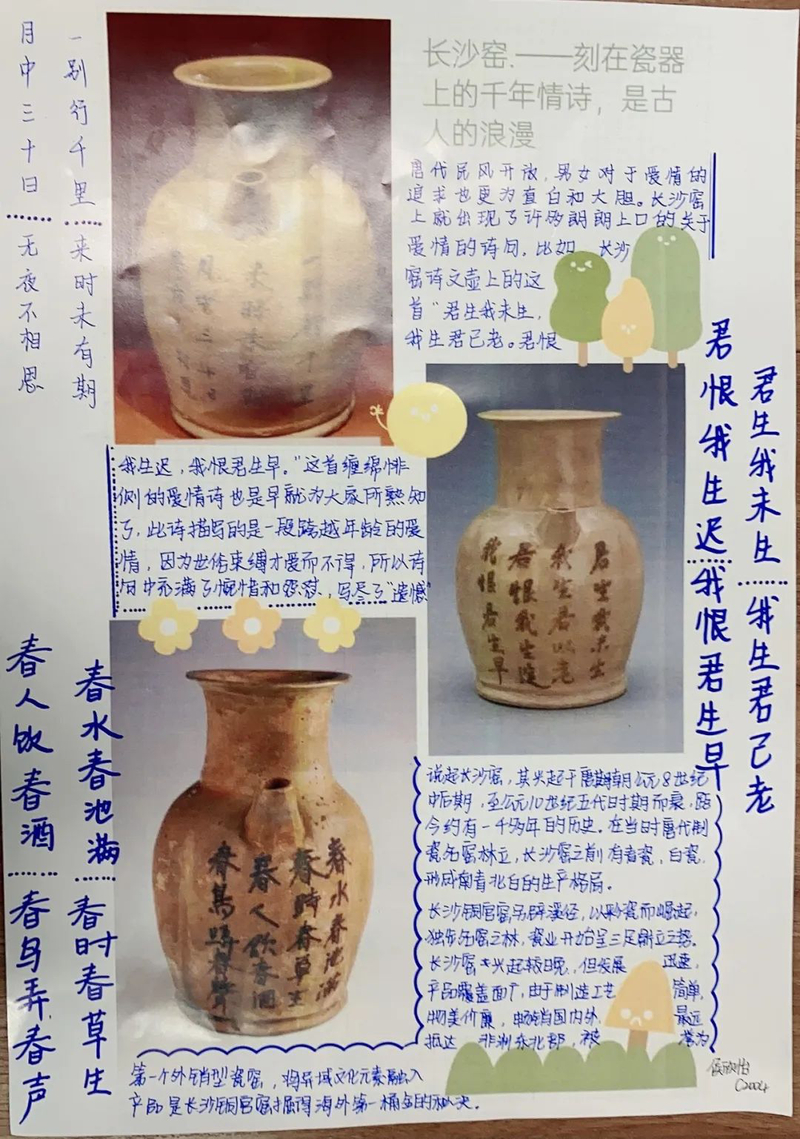 月中三十日
无夜不相思
一别行千里
来时未有期
长沙窑.——刻在瓷器
上的千年情诗，是古
人的浪漫
唐代民风开放，男女对于爱情的
追求也更为直白和大胆。长沙窑
上就出现了许多朗朗上口的关于
爱情的诗句。比如 长沙
窑诗文壶上的这
首“君生我未生，
我生君已老。君恨
我生迟，我恨君生早。”这首缠绵悱
恻的爱情诗也是早就为大家所熟知
了，此诗描写的是一段跨越年龄的爱
情，因为世俗束缚才爱而不得，所以诗
句中充满了惋惜和怨怼，写尽了“遗憾”
君生我未生
我生君已老
君恨我生迟
我恨君生早
君生我未生
我生君以老
君恨我生迟
我恨君生早
春水春池满
春时春草生
春人饮春酒
春鸟弄春声
春水春池满
春时春草生
春人饮春酒
春鸟哢春声
说起长沙窑，其兴起于唐朝朝公元8世纪
中后期，至公元10世纪五代时期而衰，距
今约有一千多年的历史。在当时唐代制
瓷名窑林立，长沙窑之前有青瓷，白瓷，
形成南青北白的生产格局。
长沙铜官窑另辟溪径，以彩瓷而崛起，
独步名窑之林，瓷业开始呈三足鼎立之势。
长沙窑兴起较晚，但发展 迅速，
产品覆盖面广，由于制造工艺 简单，
物美价廉，畅销国内外， 最远
抵达 非洲东北部，被 誉为
第一个外销型瓷窑，将异域文化元素融入
产品是长沙铜官窑掘得海外第一桶金的秘决。